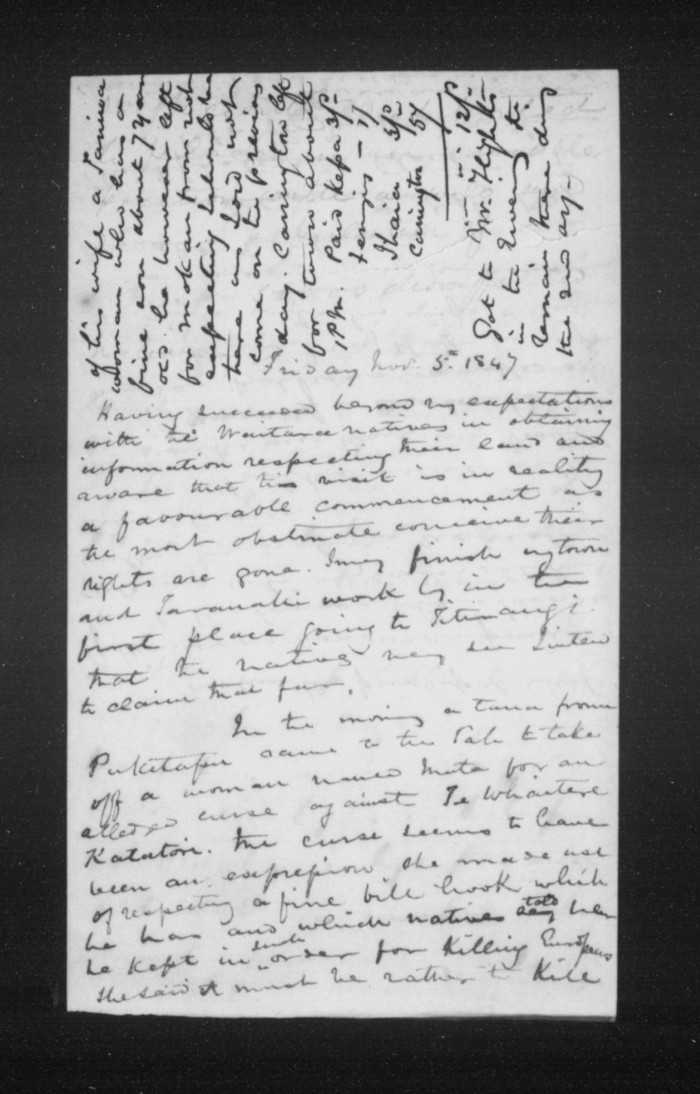 of his wife a Taniwa
woman who has a
fine son about 7 years
old. he however left
for Mokau from not
expecting I should be
here as I did not
come on the previous
day. Carrington left
for town about
1 PM. Paid Kepa 3/-
1/
Ihaia 3/-
Carrington 5/
12/-
Got to Mr. Flights
in the Evening to
remain there during
the day.
Friday Nov. 5th 1847
Having succeeded beyond my expectations
with the Waitara natives in obtaining
information respecting their land and
aware that this visit is in reality
a favourable commencement as
the most obstinate conceive their
rights are gone. I may finish my town
and Taranaki work by in the
first place going to Titirangi
that the natives may see I intend
to claim that far.
In the morning a taua from
Puketapu came to the Pah to take
off a woman named Meta for an
alleged curse against Te Whaitere
Katatori. The curse seems to have
been an expression she made use
of respecting a fine bill hook which
he has and which natives told her
he kept in such order for killing Europeans
she said it must be rather to kill